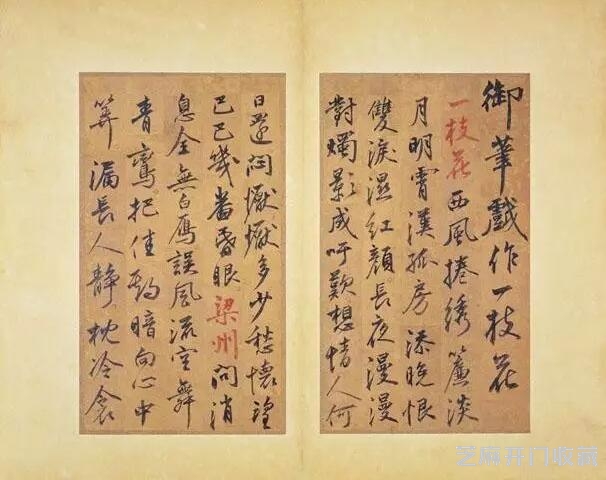 御筆戲作一枝花
一枝花西風捲綉簾淡
月明霄漢孤房添晚恨
雙淚濕紅顏長夜漫漫
對燭影成吁歎想情人何
日還悶懨懨多少愁懷望
巴巴幾番昏眼梁州問消
息全無白雁誤風流空舞
青鸞把佳期暗向心中
筭漏長人靜枕冷衾
芝麻开门收藏